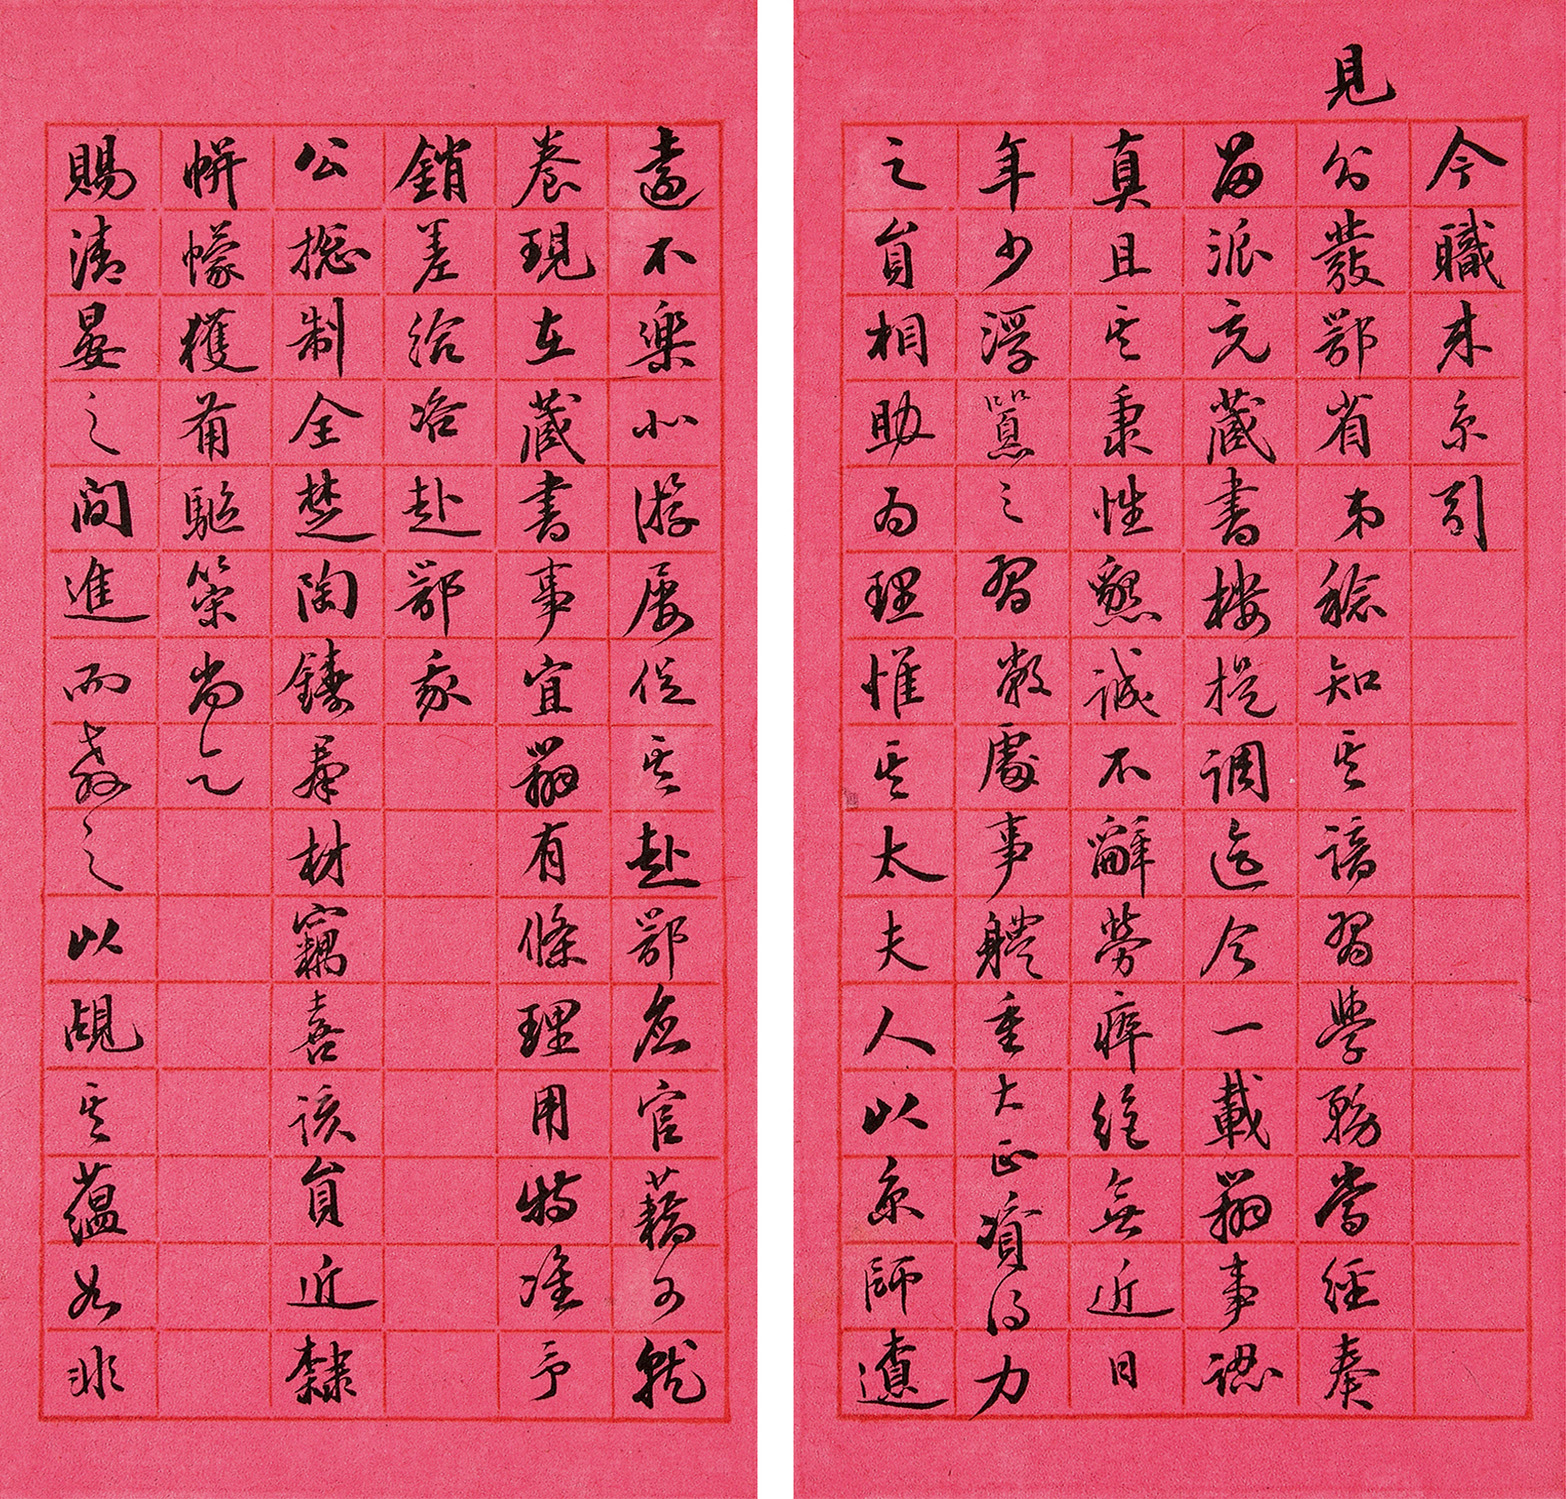 今職来京引
見分發鄂省弟稔知其諳習學務當經奏
留派充藏書樓提調迄今一載辦事認
真且其秉性懇誠不辭勞瘁絕無近日
年少浮囂之習敝處事體重大正資得力
之員相助為理惟其太夫人以京師遼
遠不樂北游屢促其赴鄂應官藉可就
養現在藏書事宜辦有條理用特准予
銷差給咨赴鄂我
公總制全楚陶鑄羣材竊喜該員近隸
帡幪獲備驅策尚乞
賜清晏之間進而教之以覘其蘊如非